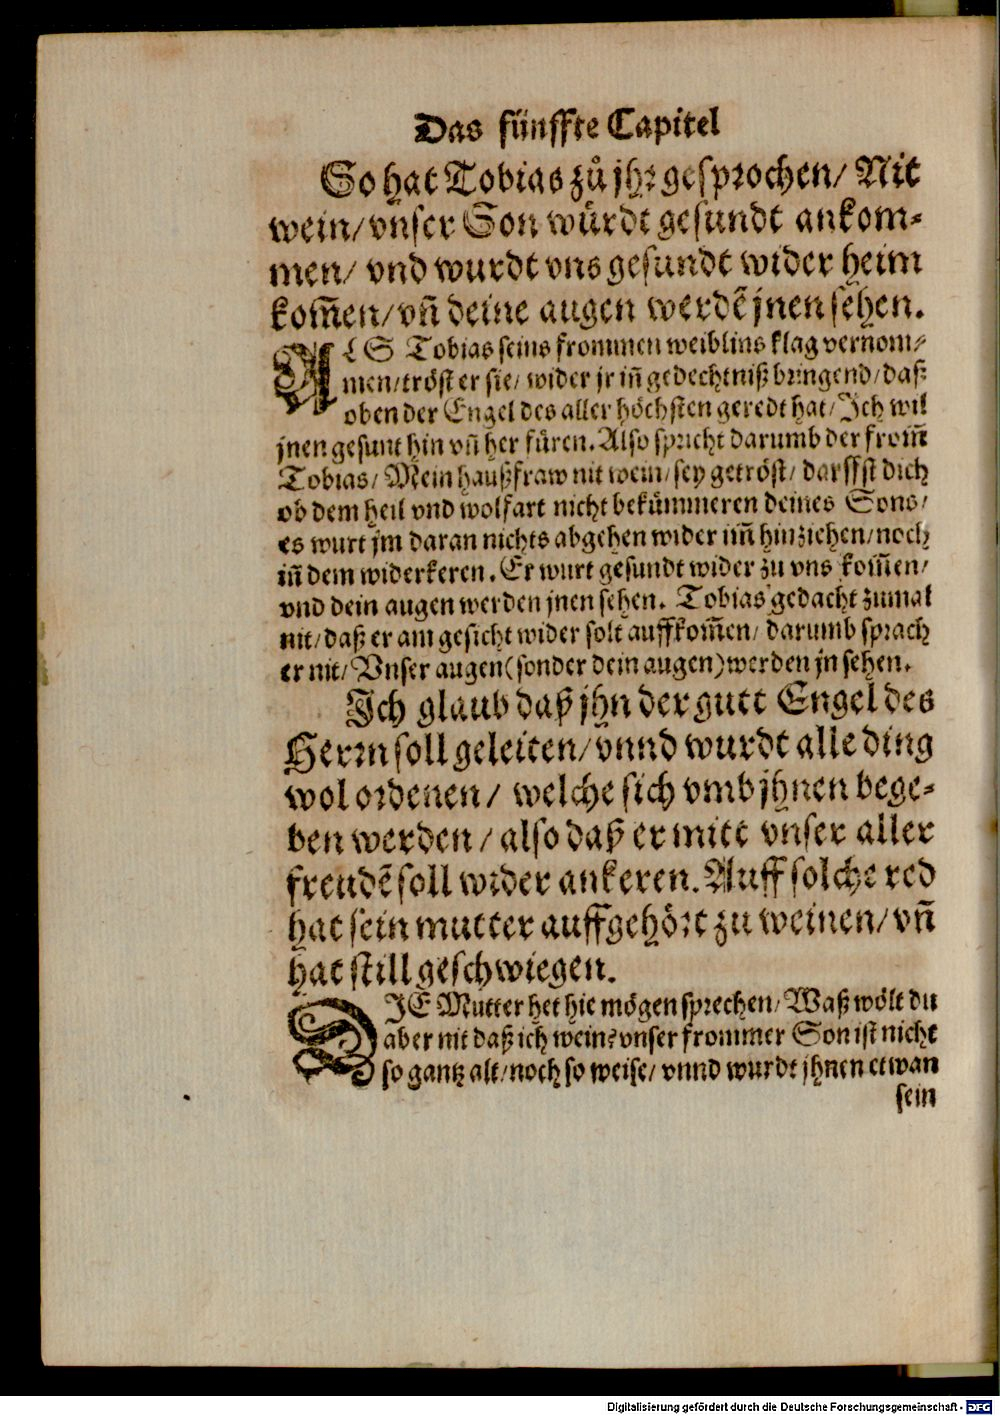 Das fünffte Capitel
So hat Tobias zů jhr gesprochen/ Nit
wein/ vnser Son würdt gesundt ankom-
men/ vnd wurdt vns gesundt wider heim
kom̃en/ vñ deine augen werdẽ jnen sehen.
ALS Tobias seins frommen weiblins klag vernom-
men/ tröst er sie/ wider jr iñ gedechtniß bringend/ daß
oben der Engel des aller höchsten geredt hat/ Ich wil
jnen gesunt hin vñ her füren. Also spricht darumb der from̃
Tobias/ Mein haußfraw nit wein/ sey getröst/ darffst dich
ob dem heil vnd wolfart nicht bekümmeren deines Sons/
es wurt jm daran nichts abgehen wider im̃ hinziehen/ noch
iñ dem widerkeren. Er wurt gesundt wider zu vns kom̃en/
vnd dein augen werden jnen sehen. Tobias gedacht zumal
nit/ daß er am gesicht wider solt auffkom̃en/ darumb sprach
er nit/ Vnser augen (sonder dein augen) werden jn sehen.
Ich glaub daß jhn der gutt Engel des
Herrn soll geleiten/ vnnd wurdt alle ding
wol ordenen/ welche sich vmb jhnen bege-
ben werden/ also daß er mitt vnser aller
freudẽ soll wider ankeren. Auff solche red
hat sein mutter auffgehört zu weinen/ vñ
hat still geschwiegen.
DIE Mutter het hie mögen sprechen/ Waß wölt du
aber nit daß ich wein? vnser frommer Son ist nicht
so gantz alt/ noch so weise/ vnnd wurdt jhnen etwan
sein
Digitalisierung gefördert durch die Deutsche Forschungsgemeinschaft - DFG